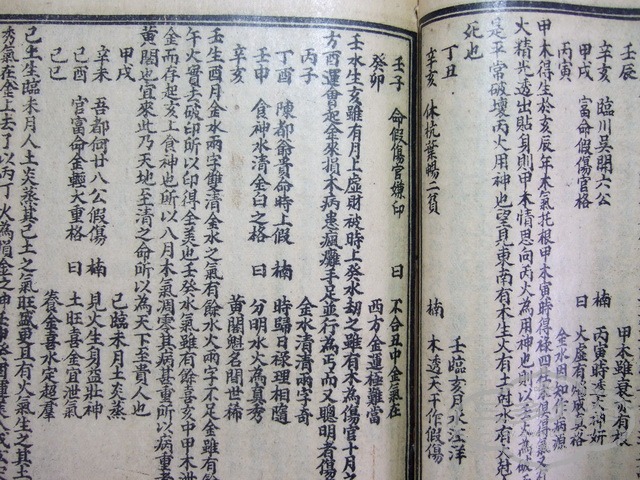 壬辰
辛亥 臨川吳開六公 楠
甲戌 富命假傷官格 曰
丙寅 金水困知作病源
甲木得生於亥辰年木氣托根甲木寅時得祿四柱
火精光透出貼身則甲木情思向丙火為用神也則以壬
是平常破壞丙火用神也望見東南有木生火有土尅水有火尅
死也
丁丑 壬臨亥月水汪洋
辛亥 休杭葉暢二貧 楠 木透天干作假傷
壬子 命假傷官嫌印 曰 不合丑中金氣在
癸卯 西方金運極難當
壬水生亥雖有月上虛財被時上癸水刼之雖有木為傷官十月之
方酉運會起金來損木病患瘋癱手足並行為丐而又聰明者傷
丙子 金水清清兩字奇
丁酉 陳都翁貴命時上假 楠 時歸日祿理相隨
壬申 食神水清金白之格 曰 分明水火為真秀
辛亥 黃閣魁名間世稀
壬生酉月金水兩字雙清金水之氣有餘水火兩字不足金雖有餘
午火實去破印所以印得全美也壬癸水氣雖有餘喜亥中甲木泄
金而存起亥上食神也所以八月木氣凋零其病甚重所以病重者
黃閣也宜來此乃天地至清之命所以為天下至貴人也
甲戌 己臨未月土炎蒸
辛未 吾都何廿八公假傷 楠 見火生身益壯神
己酉 官富命金輕火重格 曰 土旺喜金宜泄氣
己巳 養金喜水定超羣
己土生臨未月人土炎蒸其己土之氣旺盛更且有火氣生之其土
秀氣在金上去了以丙丁火為損金之神